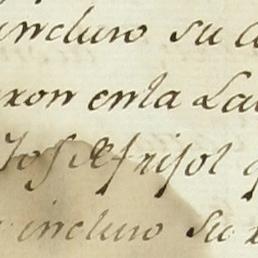 incluso su
xon enla La
Jos Afrisol q
incluso su